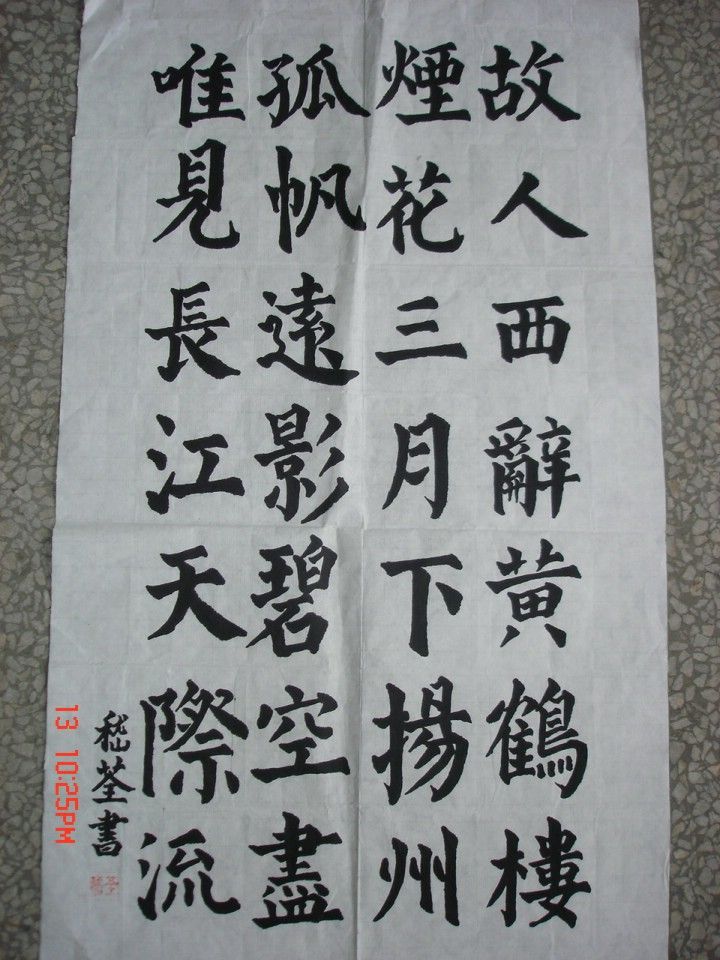 故人西辭黄鶴樓
煙花三月下揚州
孤帆遠影碧空盡
唯見長江天際流
嵇荃書
13 10:25PM